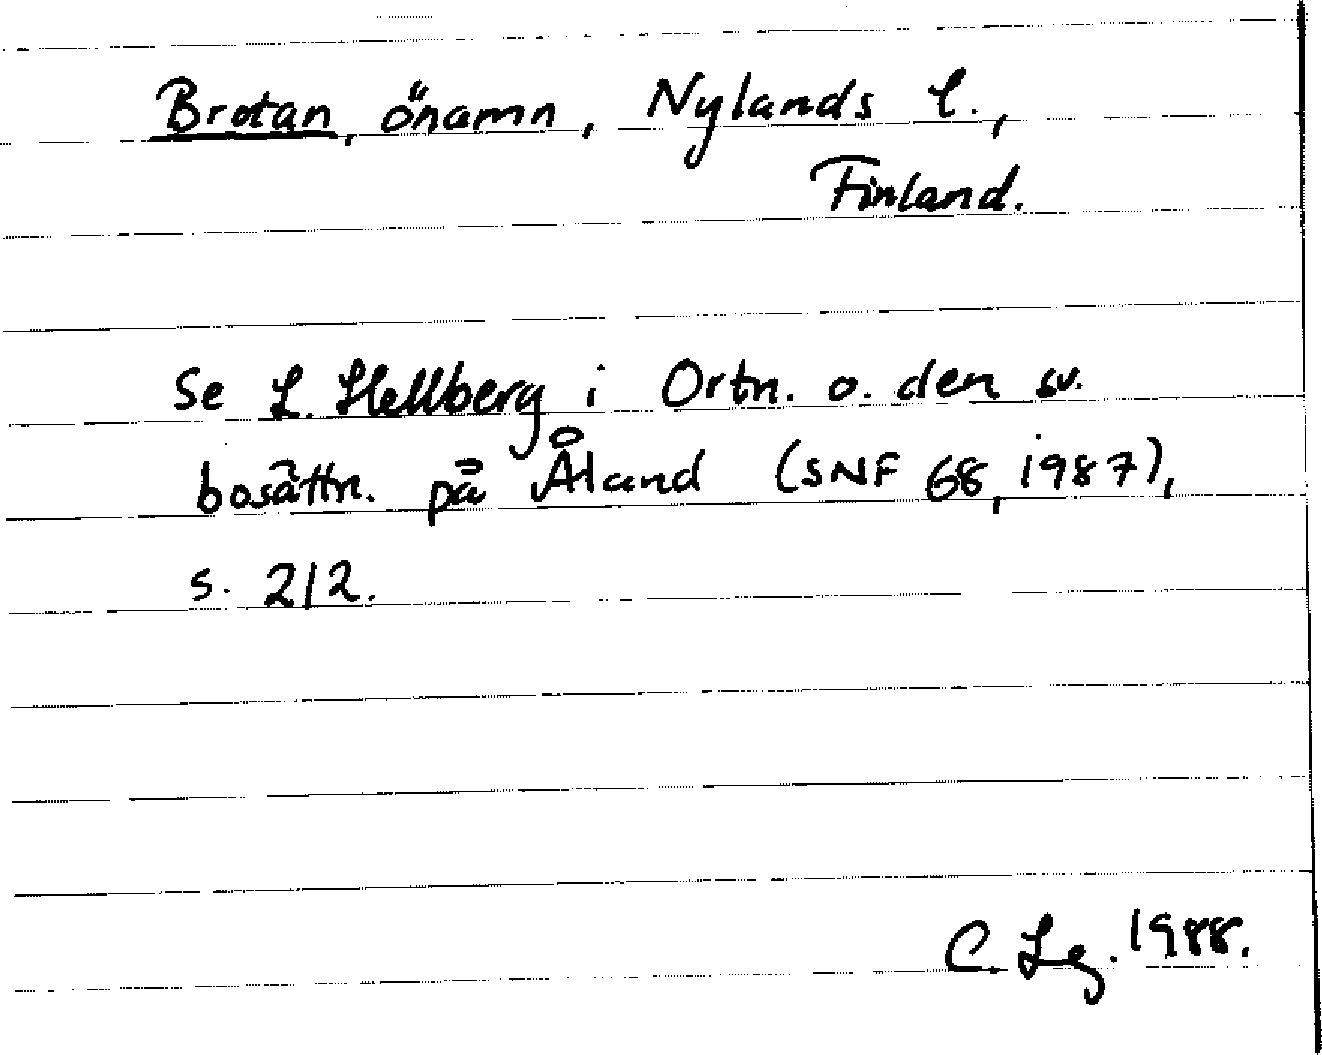 Brotan, önamn, Nylands l.,
Finland.
Se L. Hellberg i Ortn. o. den sv.
bosättn. på Åland (SNF 68, 1987),
s. 212.
C. Lg. 1988.